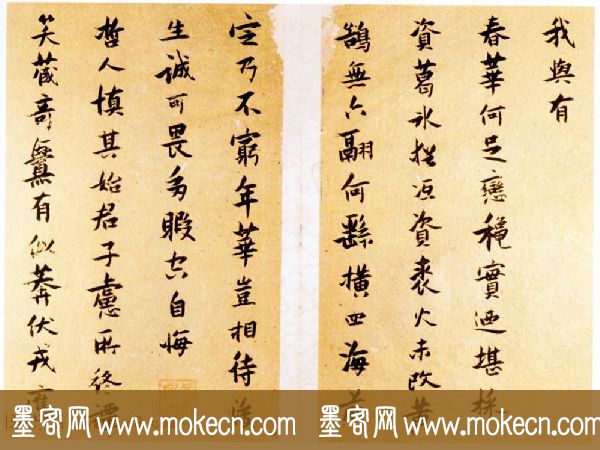 我與有
春華何足戀穠實迺堪採
資葛氷資裘火未改
鵠無六翮何繇橫四海
定乃不窮年華豈相待後
生誠可畏多暇空自悔
哲人慎其始君子慮所終
笑蔵奇釁有似莽伏戎
墨客网 www.mokecn.com
墨客网 www.mokecn.com